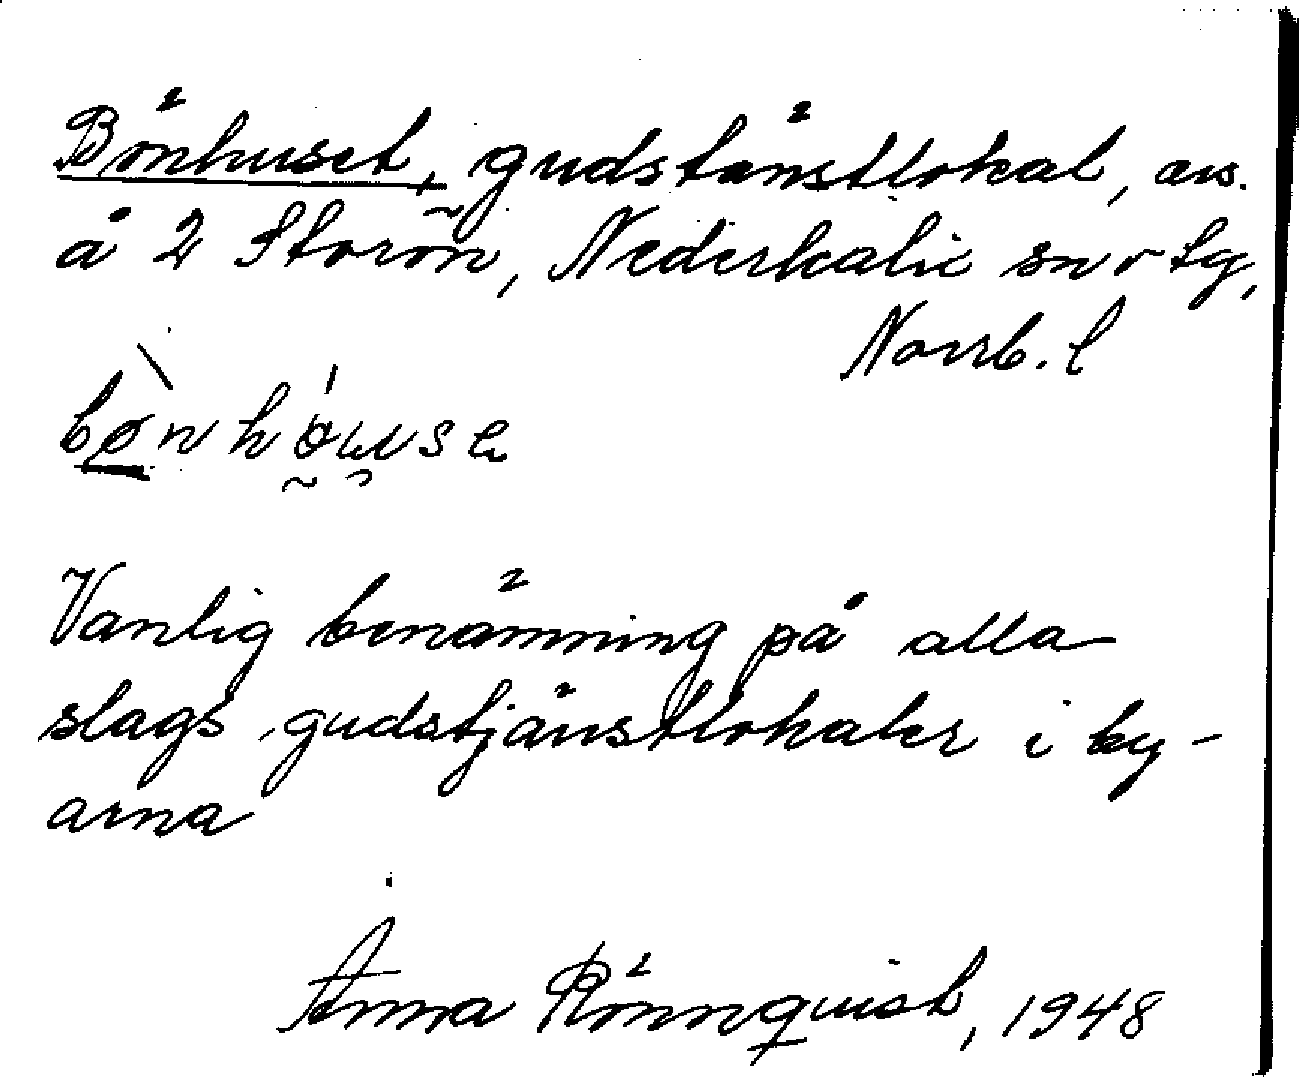 Bönhuset, gudstänstlokal, av.
å 2 Storön, Nederkalix sn o tg,
Norrb. l
Vanlig benämning på alla
slags gudstjänstlokaler i by-
arna
Anna Rönnquist, 1948